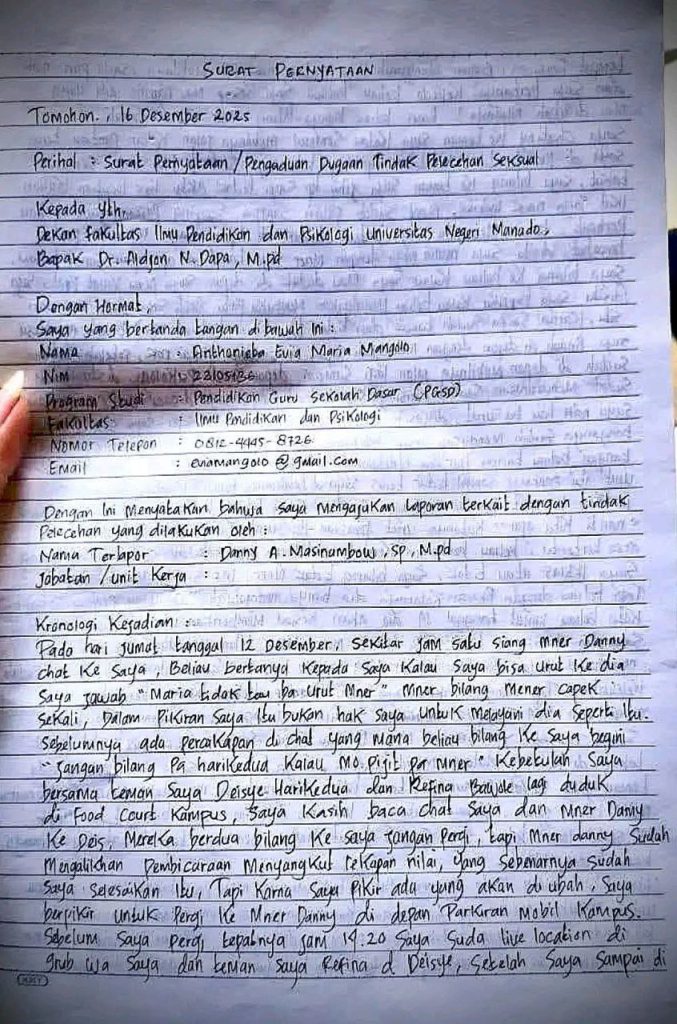 SURAT PERNYATAAN
Tomohon, 16 Desember 2025
Perihal : Surat Pernyataan / Pengaduan Dugaan Tindak Pelecehan Seksual
Kepada Yth,
Dekan Fakultas Ilmu Pendidikan dan Psikologi Universitas Negeri Manado,
Bapak Dr. Aldjon N. Dapa, M.pd
Dengan Hormat,
Saya yang bertanda tangan di bawah ini :
Nama : Evia Maria Mangolo
Nim :
Program Studi : Pendidikan Guru Sekolah Dasar (PGSD)
Fakultas : Ilmu Pendidikan dan Psikologi
Nomor Telepon : 0812-4445-8726
Email : eviamangolo@gmail.com
Dengan Ini Menyatakan bahwa saya mengajukan laporan terkait dengan tindak
Pelecehan yang dilakukan oleh :
Nama Terlapor : Danny A. Masinambow, SP, M.pd
Jabatan / unit Kerja :
Kronologi Kejadian :
Pada hari Jumat tanggal 12 Desember, sekitar jam satu siang mner Danny
chat Ke saya, Beliau bertanya Kepada saya Kalau saya bisa urut Ke dia
saya jawab "Maria tidak tau ba urut Mner" Mner bilang Mener capek
sekali, Dalam Pikiran saya itu bukan hak saya untuk melayani dia seperti itu.
Sebelumnya ada percakapan di chat yang mana beliau bilang Ke saya begini
"Jangan bilang Pa hariKedua Kalau Mo pijit pa mner" Kebetulan saya
bersama teman saya Deisye HariKedua dan Refina Bawole lagi duduk
di Food Court Kampus, Saya Kasih baca chat saya dan Mner Danny
Ke Deis, Mereka berdua bilang Ke saya jangan pergi, tapi Mner danny Sudah
Mengalihkan Pembicaraan Menyangkut rekapan nilai, yang sebenarnya sudah
Saya selesaikan itu, Tapi Karna Saya Pikir ada yang akan di ubah, Saya
berpikir untuk Pergi Ke Mner Danny di depan Parkiran Mobil Kampus.
Sebelum Saya pergi tepatnya jam 14.20 Saya Suda live location di
grub wa Saya dan teman Saya Refina d Deisye, Setelah Saya Sampai di